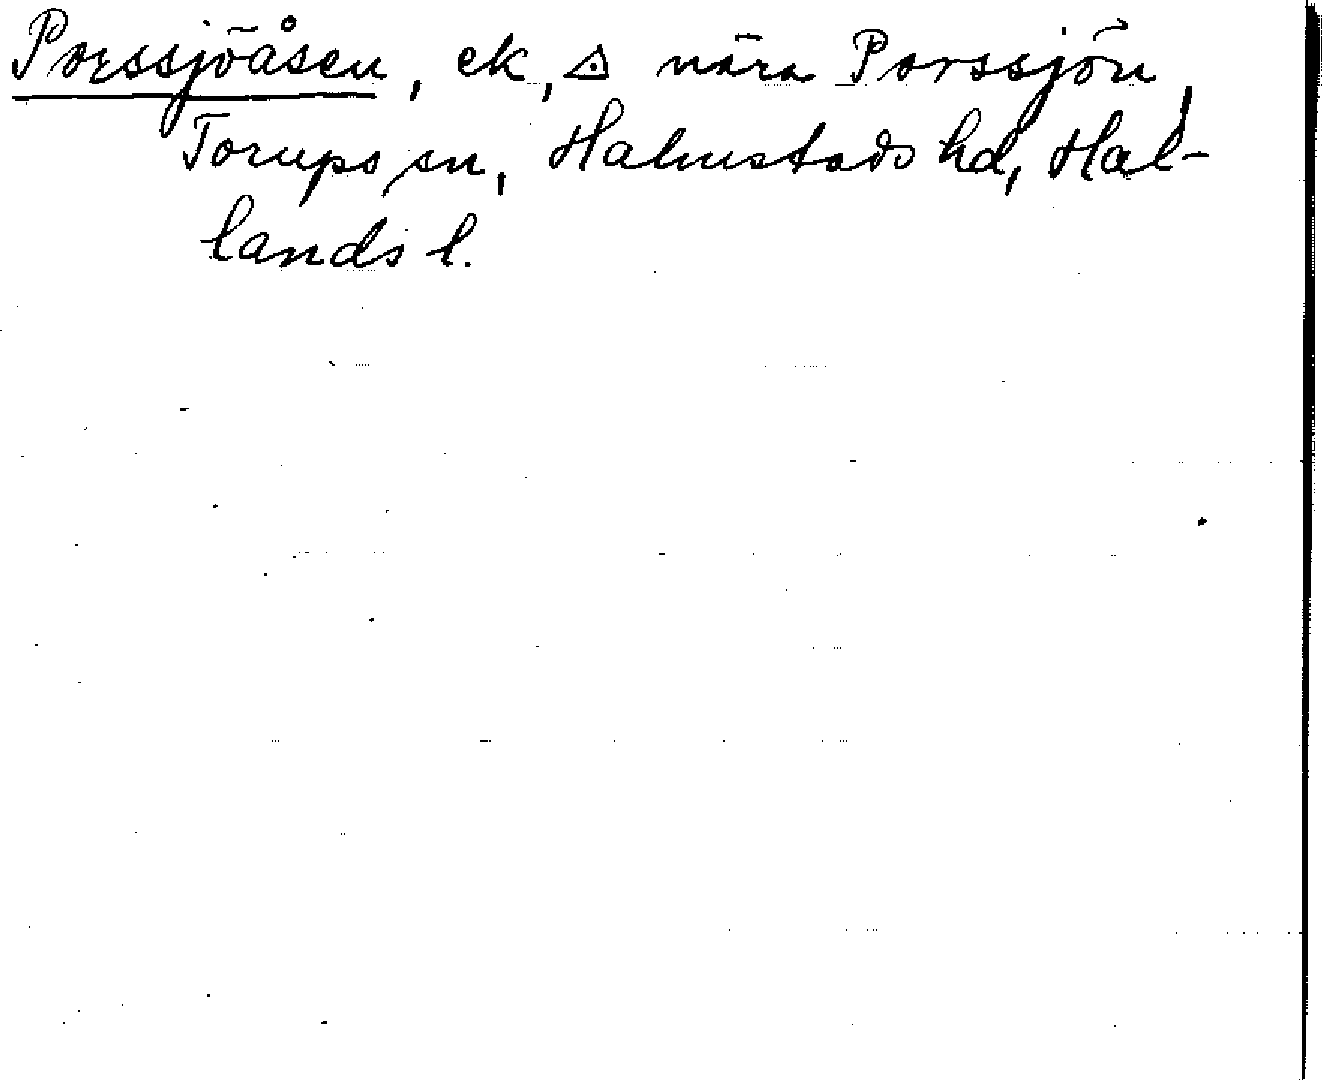 Porssjöåsen, ek, ◬ nära Porssjön,
Torups sn, Halmstads hd, Hal-
lands l.